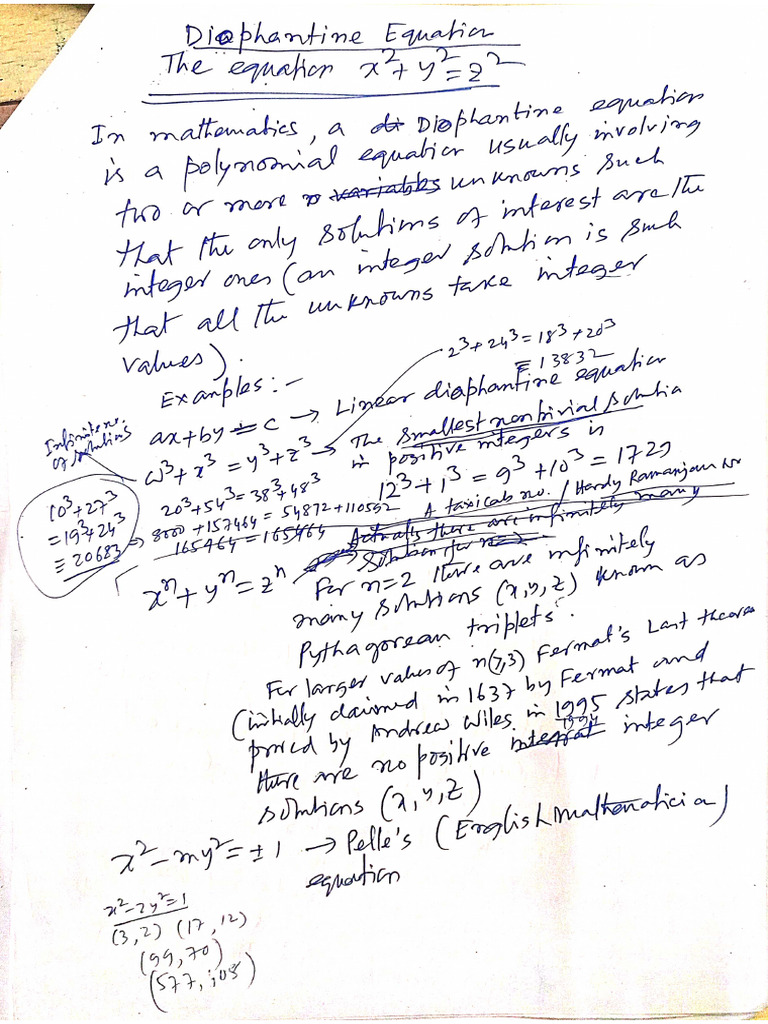 Diophantine Equation
The equation x²+y²=z²
In mathematics, a di Diophantine equation
is a polynomial equation usually involving
two or more variables unknowns such
that the only solutions of interest are the
integer ones (an integer solution is such
that all the unknowns take integer
values).
2³+24³=18³+20³
=13832
Examples:-
ax+by=c → Linear diophantine equation
Infinite no.
of solutions
w³+x³=y³+z³ → The smallest nontrivial solution
in positive integers is
12³+1³=9³+10³=1729
A taxicab no. / Hardy Ramanujan no
10³+27³
=19³+24³
=20683
20³+54³=38³+48³
8000+157464=54872+110592
165464=165464
Actually there are infinitely many
solutions for n=2
xⁿ+yⁿ=zⁿ
For n=2 there are infinitely
many solutions (x,y,z) known as
Pythagorean triplets.
For larger values of n(7,3) Fermat's Last theorem
(initially claimed in 1637 by Fermat and
proved by Andrew Wiles in 1995 states that
1994
there are no positive integral integer
solutions (x,y,z)
x²-my²=±1 → Pelle's (English Mathematician)
equation
x²-2y²=1
(3,2) (17,12)
(99,70)
(577,408)